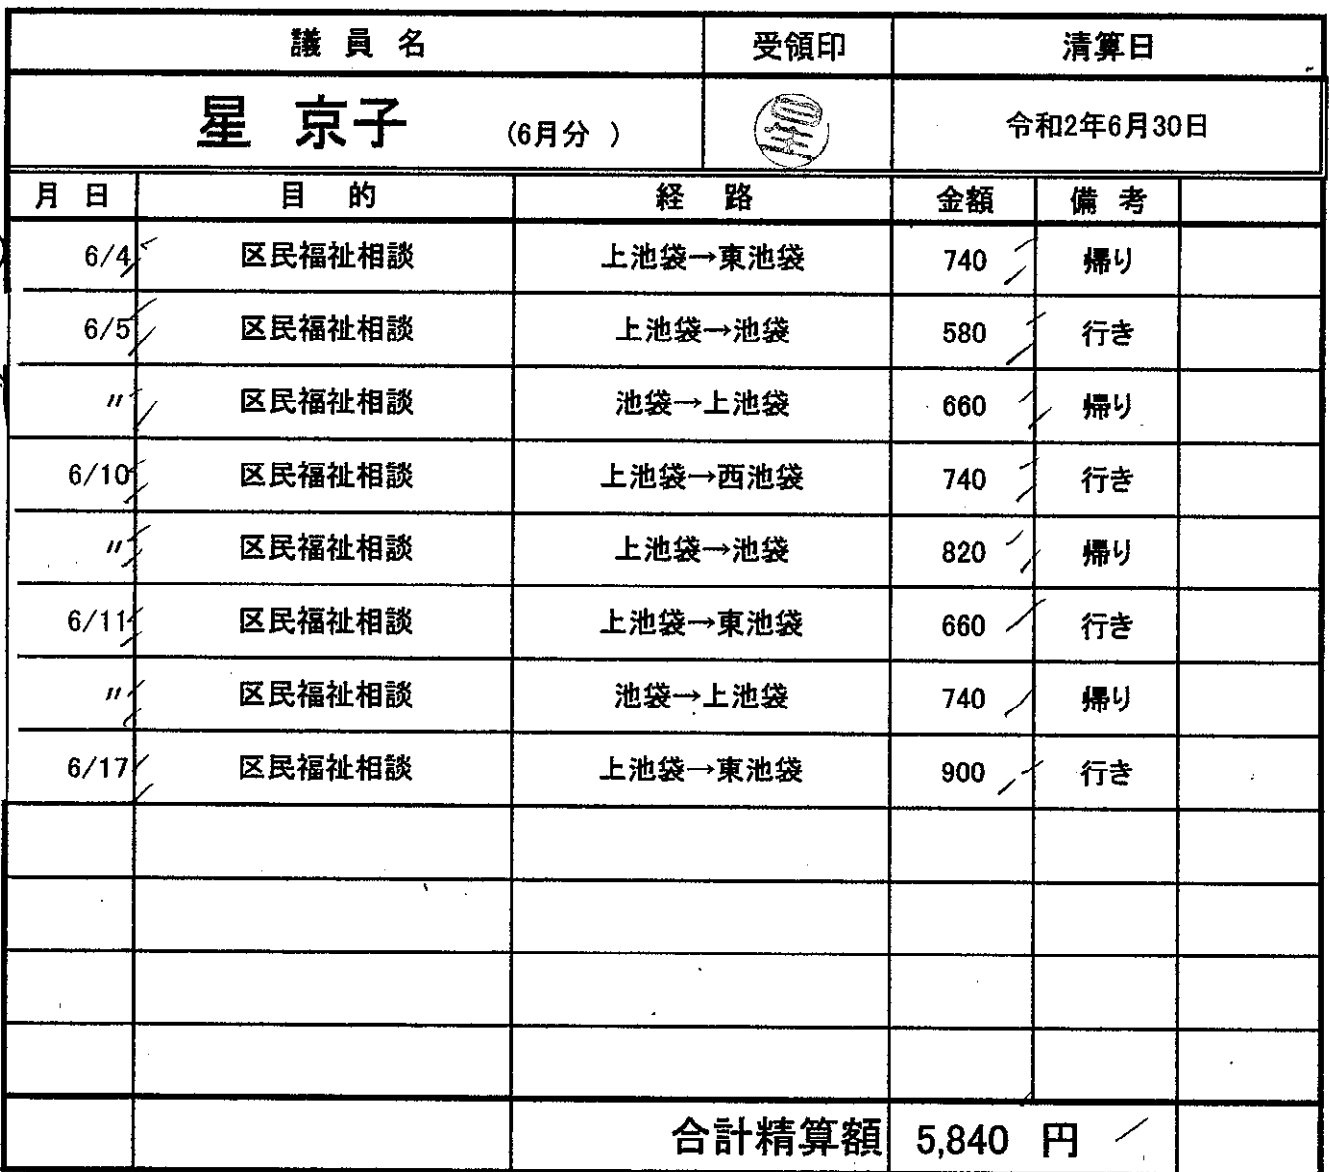 議 員 名 受領印 清算日
星 京子 (6月分 ) 星 令和2年6月30日
月 日 目 的 経 路 金額 備 考
6/4 区民福祉相談 上池袋→東池袋 740 帰り
6/5 区民福祉相談 上池袋→池袋 580 行き
〃 区民福祉相談 池袋→上池袋 660 帰り
6/10 区民福祉相談 上池袋→西池袋 740 行き
〃 区民福祉相談 上池袋→池袋 820 帰り
6/11 区民福祉相談 上池袋→東池袋 660 行き
〃 区民福祉相談 池袋→上池袋 740 帰り
6/17 区民福祉相談 上池袋→東池袋 900 行き
合計精算額 5,840 円